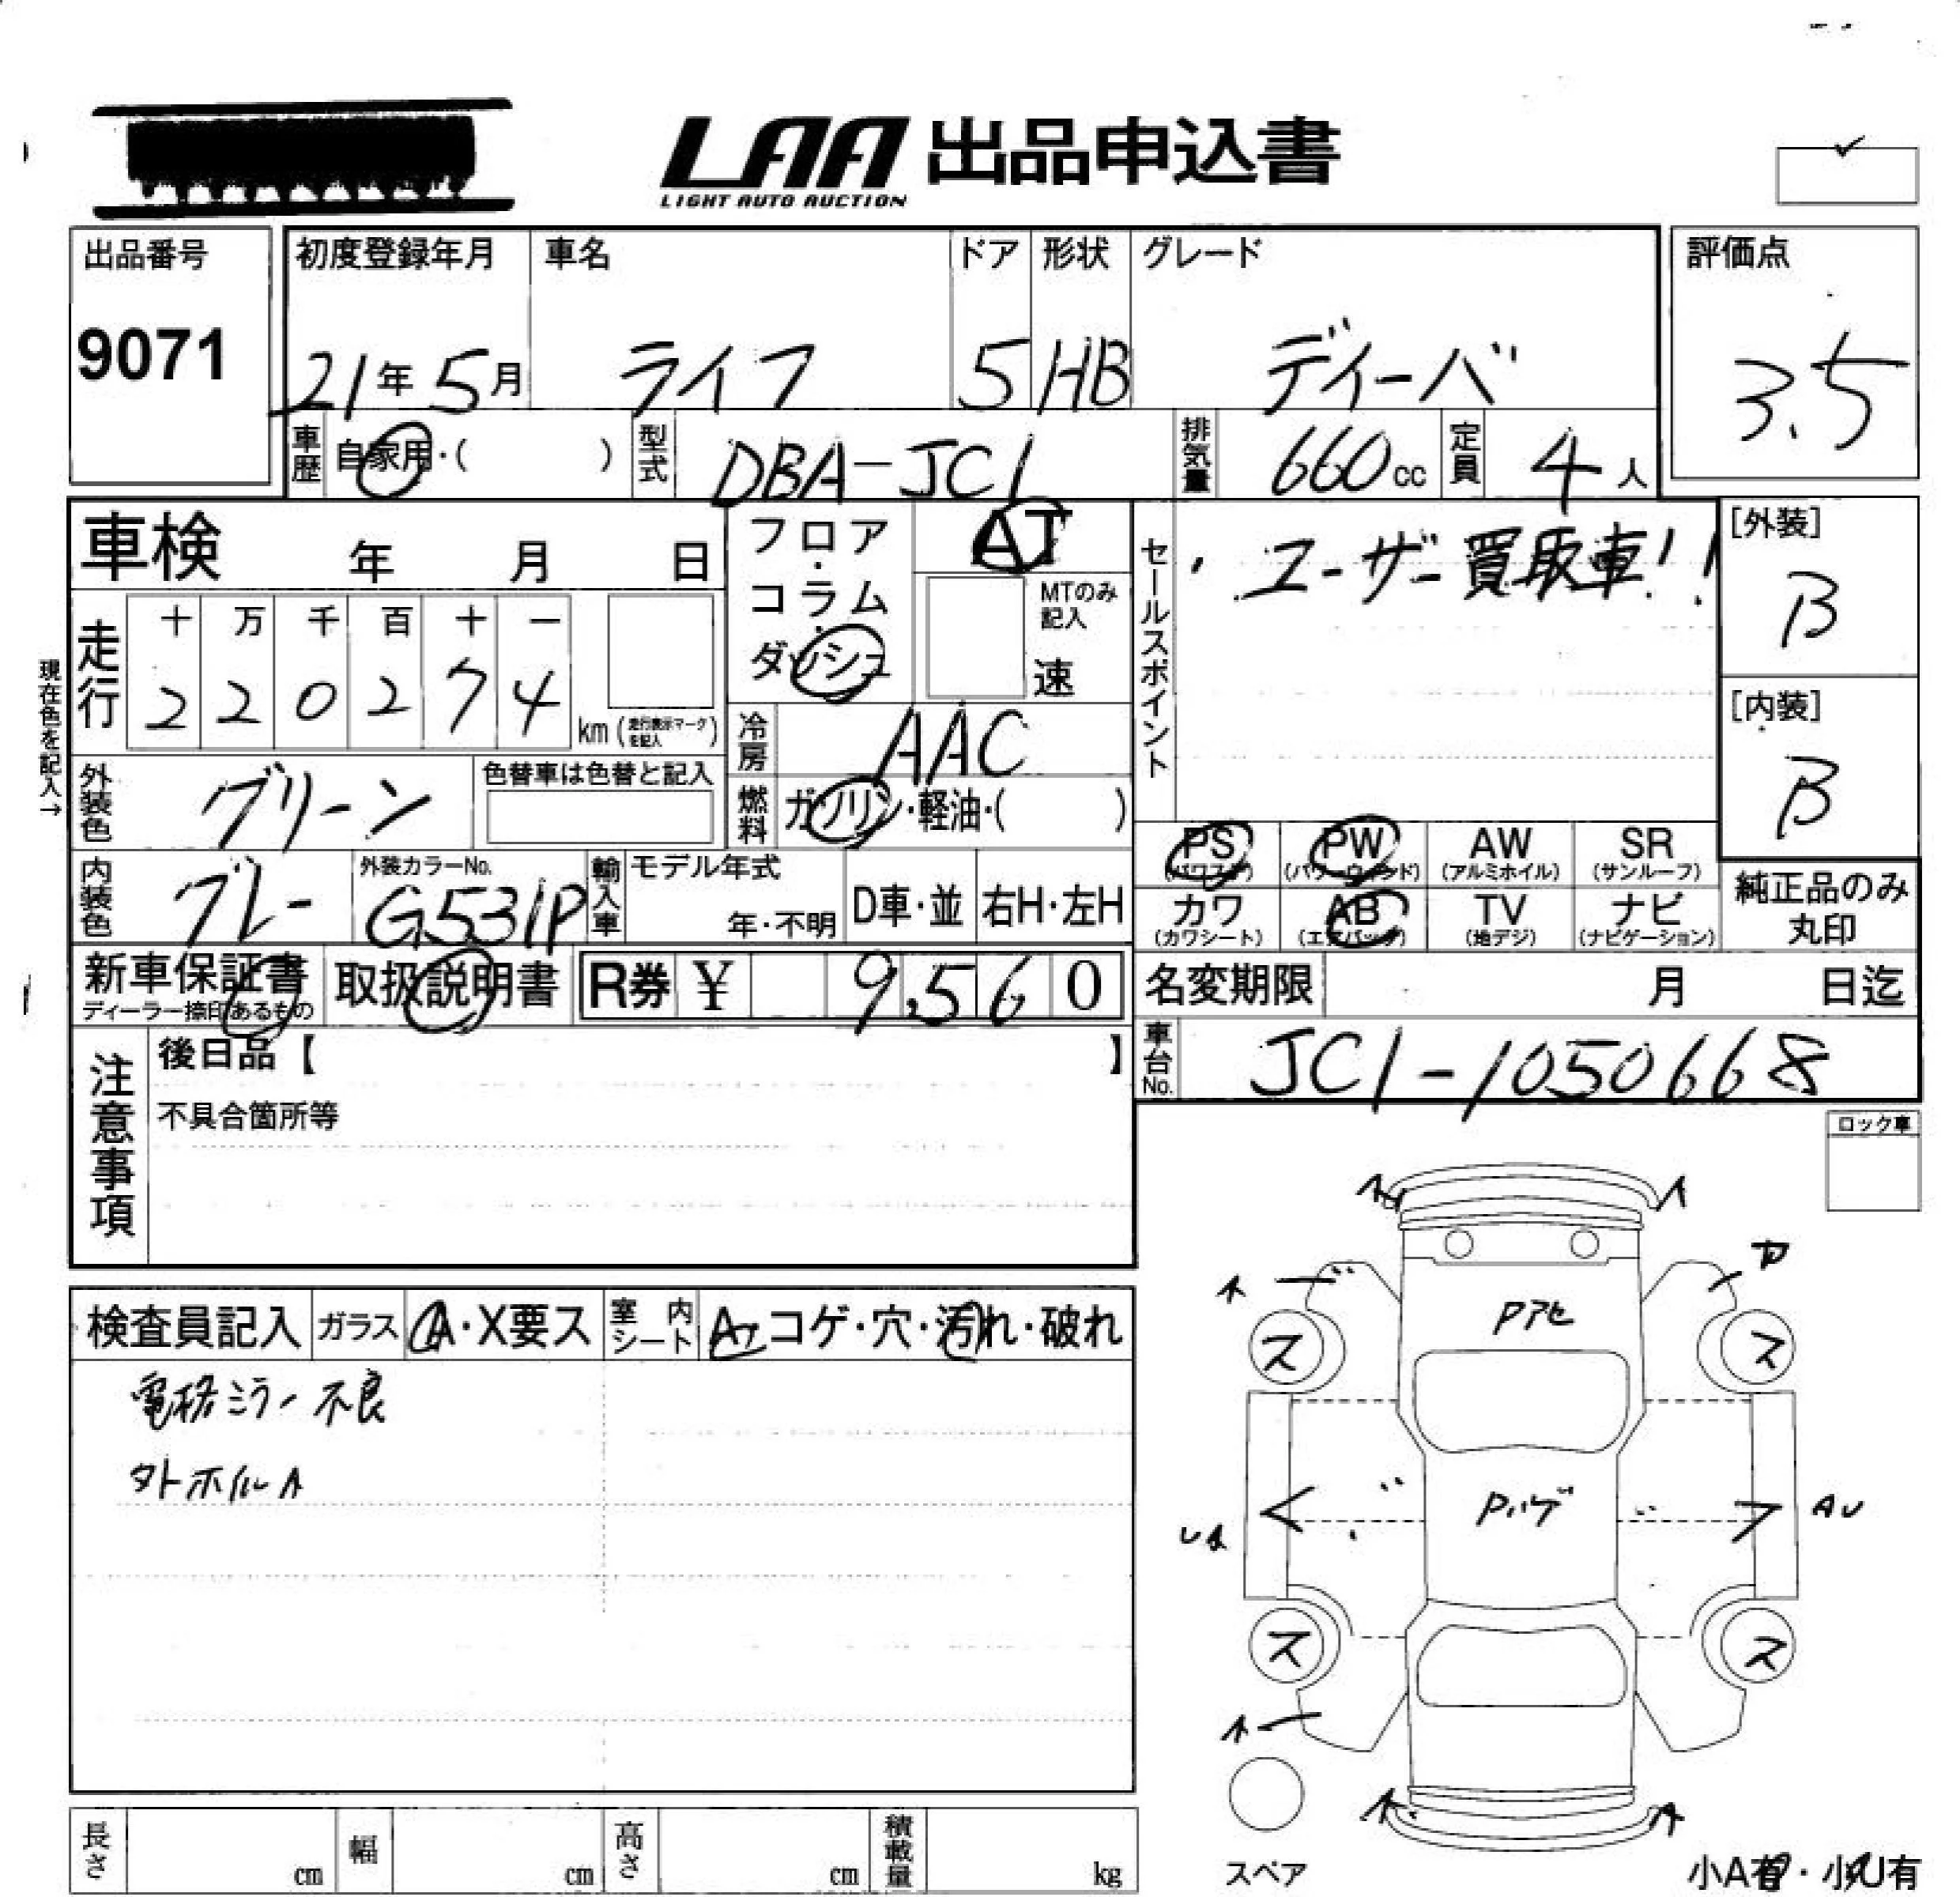 LAA 出品申込書
LIGHT AUTO AUCTION
出品番号
9071
初度登録年月
21年5月
車名
ライフ
ドア
5
形状
HB
グレード
ディーバ
評価点
3.5
車歴 自家用・( )
型式 DBA-JC1
排気量 660cc
定員 4人
車検 年 月 日
フロア・コラム・ダッシュ
AT
MTのみ記入
速
セールスポイント
・ユーザー買取車!!
[外装]
B
[内装]
B
現在色を記入→
走行
十 万 千 百 十 一
2 2 0 2 7 4 km (走行表示マークを記入)
冷房 AAC
外装色 グリーン
色替車は色替と記入
燃料 ガソリン・軽油・( )
内装色 グレー
外装カラーNo.
G531P
輸入車 モデル年式
年・不明
D車・並
右H・左H
PS (パワステ)
PW (パワーウィンド)
AW (アルミホイル)
SR (サンルーフ)
カワ (カワシート)
AB (エアバッグ)
TV (地デジ)
ナビ (ナビゲーション)
純正品のみ丸印
新車保証書
ディーラー捺印あるもの
取扱説明書
R券 ¥ 9,560
名変期限 月 日迄
車台No. JC1-1050668
注意事項
後日品【 】
不具合箇所等
ロック車
検査員記入
ガラス A・X要ス
室内シート A・コゲ・穴・汚れ・破れ
電格ミラー不良
タトホイルA
Pアセ
Pハゲ
ス
ス
ス
ス
AU
スペア
小A有・小U有
長さ cm
幅 cm
高さ cm
積載量 kg